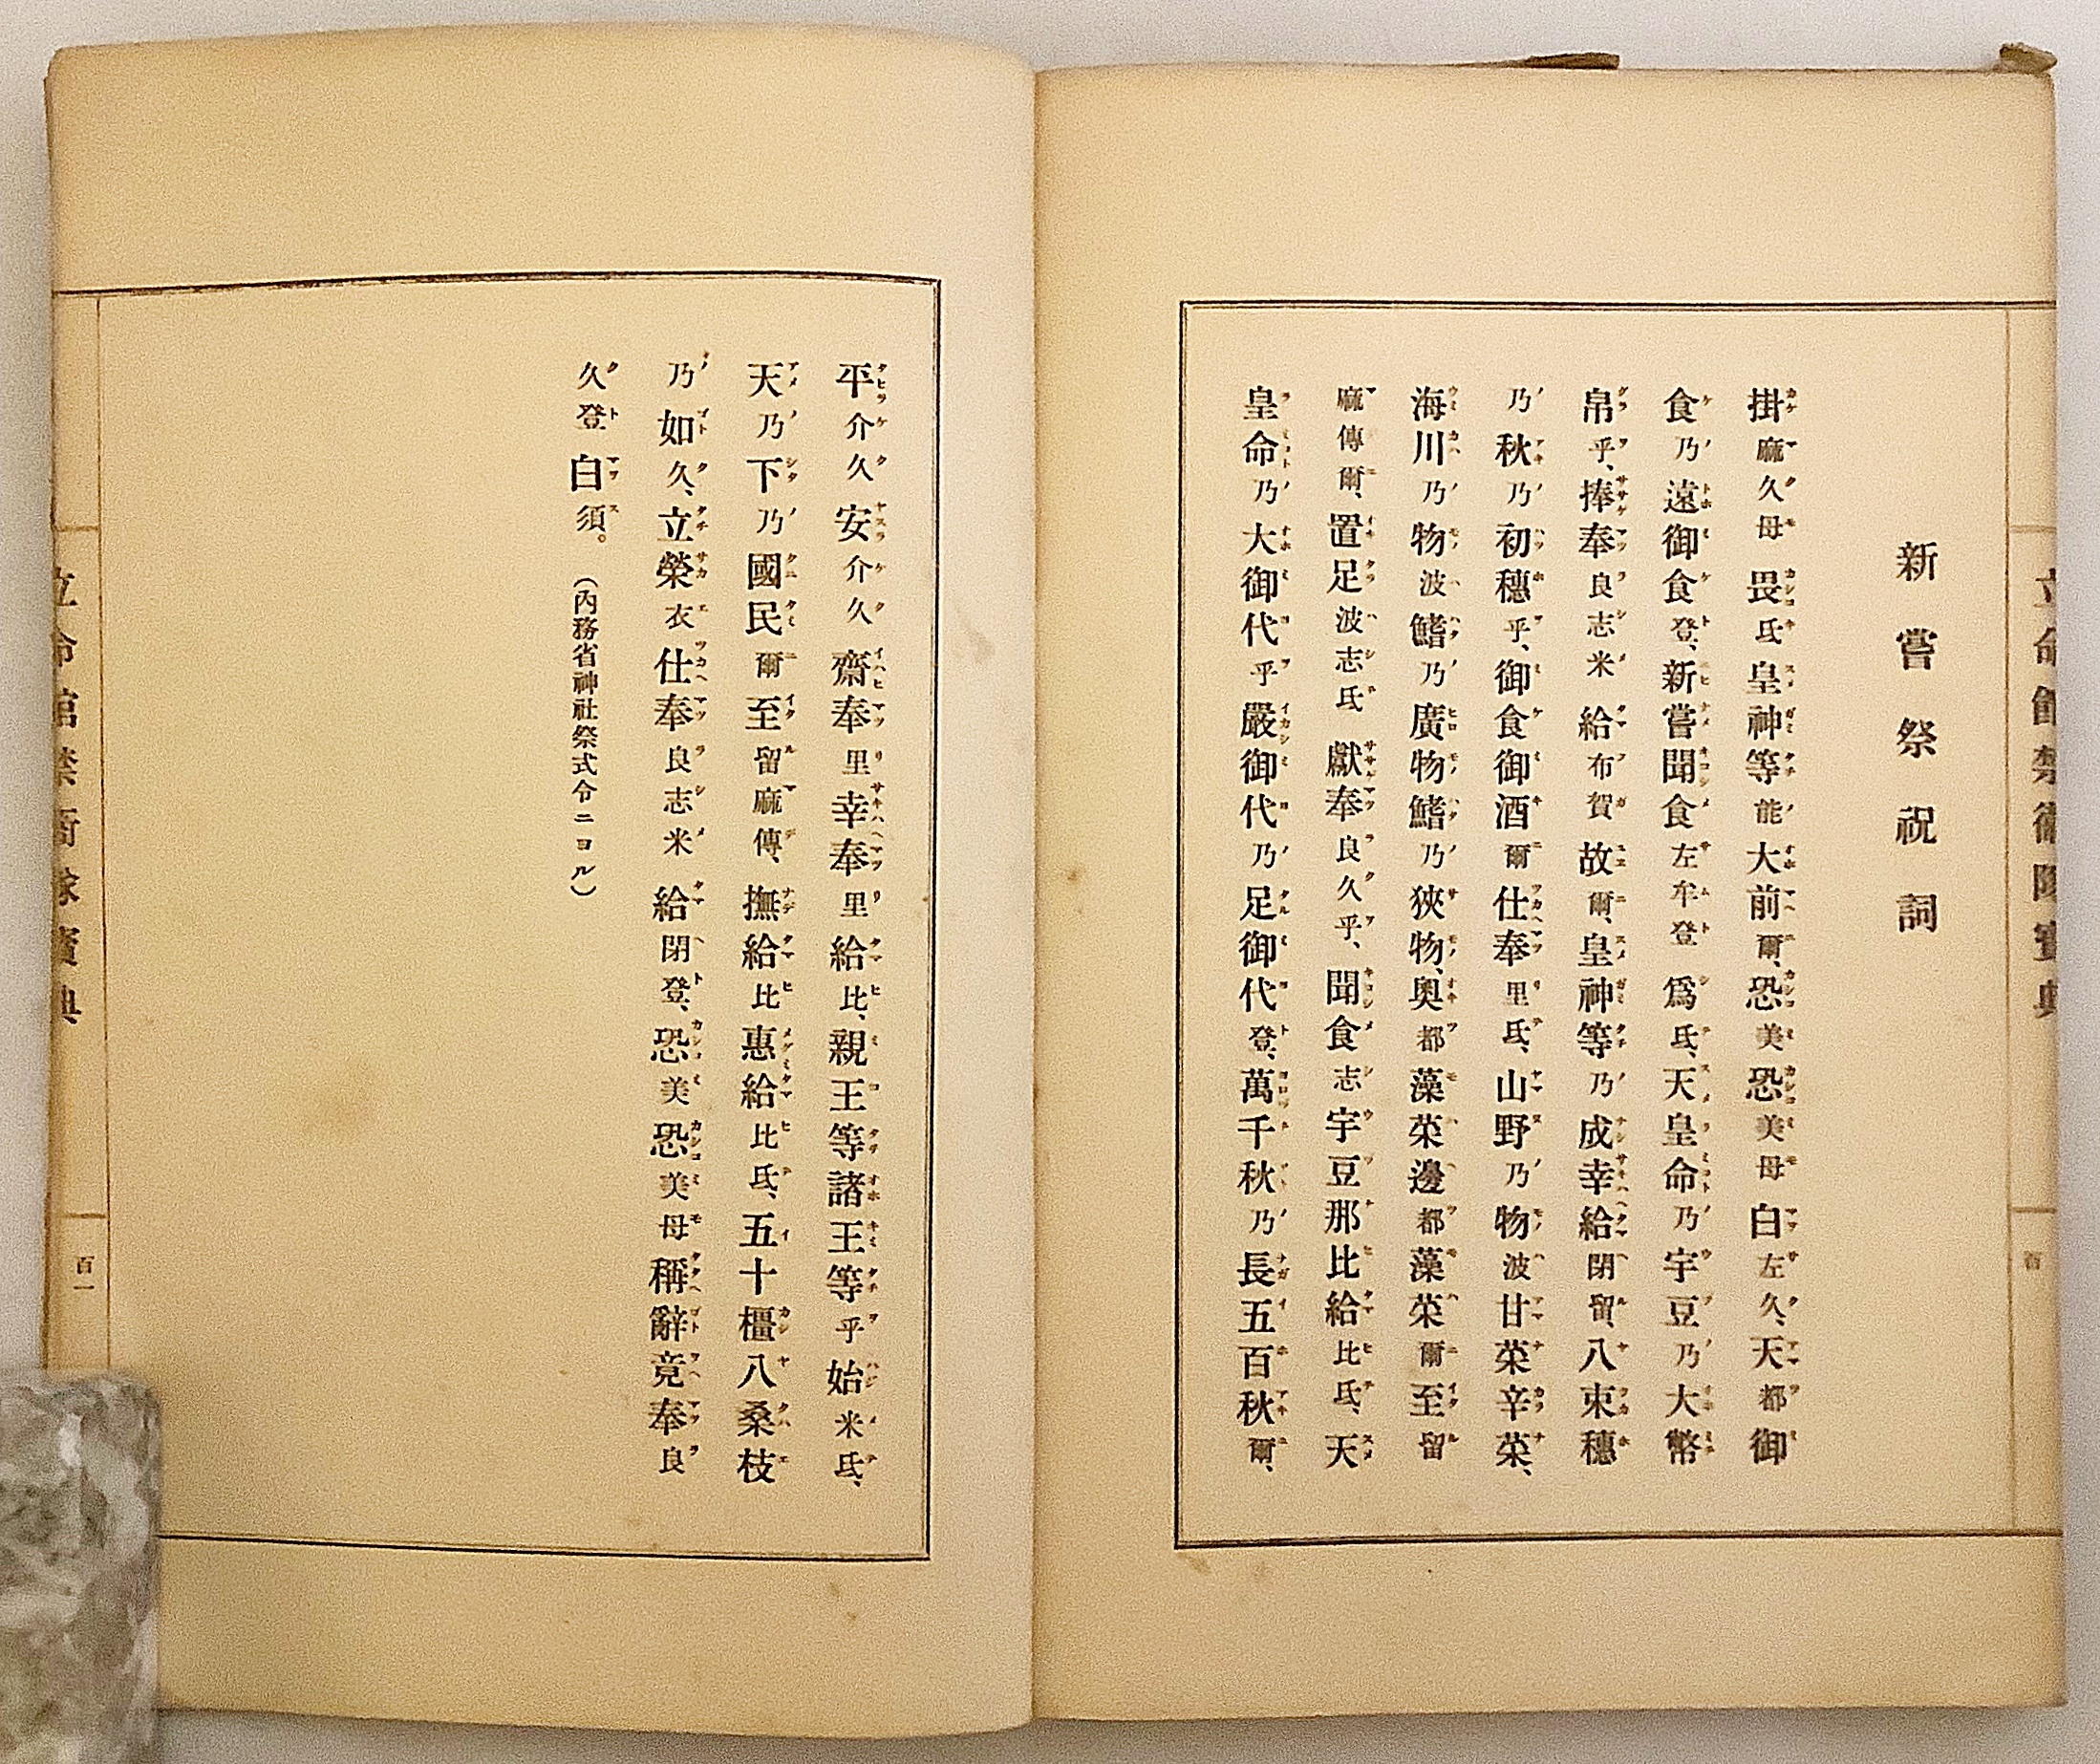 立命館禁衛隊寳典
百
新嘗祭祝詞
掛麻久母畏氐皇神等能大前爾、恐美恐美母白左久、天都御
食乃遠御食登、新嘗聞食左牟登爲氐、天皇命乃宇豆乃大幣
帛乎、捧奉良志米給布賀故爾、皇神等乃成幸給閉留、八束穗
乃秋乃初穗乎、御食御酒爾仕奉里氐、山野乃物波甘菜辛菜、
海川乃物波鰭乃廣物鰭乃狹物、奧都藻菜邊都藻菜爾至留
麻傳爾、置足波志氐獻奉良久乎、聞食志宇豆那比給比氐、天
皇命乃大御代乎嚴御代乃足御代登、萬千秋乃長五百秋爾、
平介久安介久齋奉里幸奉里給比、親王等諸王等乎始米氐、
天乃下乃國民爾至留麻傳、撫給比惠給比氐、五十橿八桑枝
乃如久、立榮衣仕奉良志米給閉登、恐美恐美母稱辭竟奉良
久登白須。（內務省神社祭式令ニヨル）
立命館禁衛隊寳典
百一